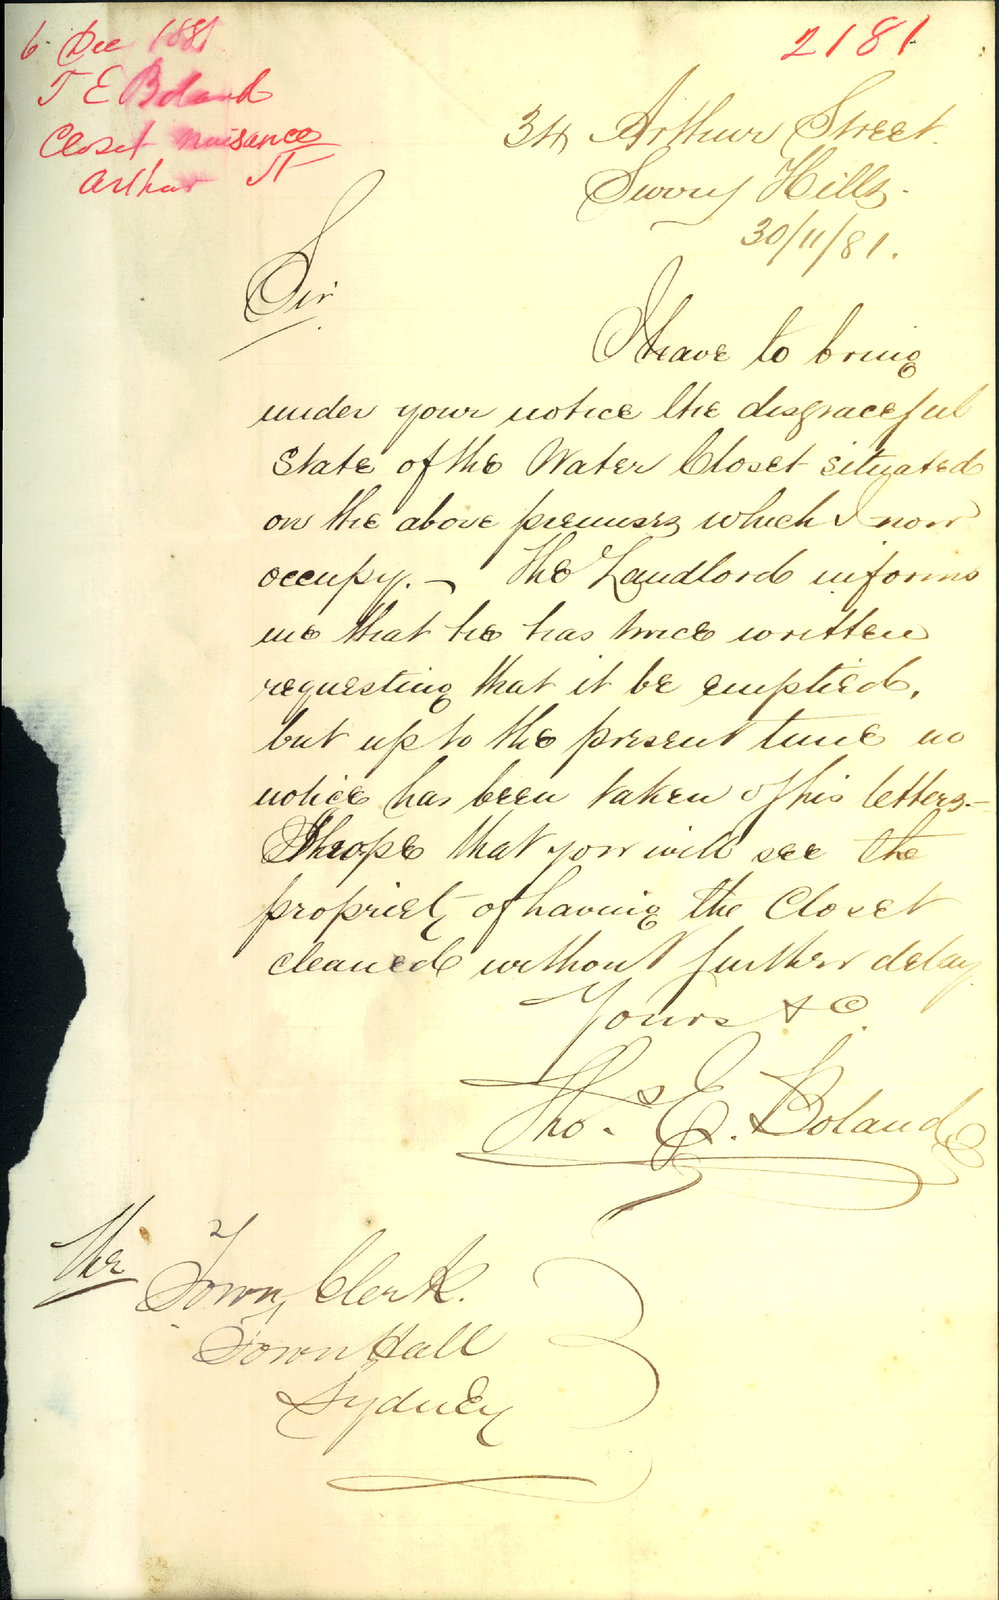 6 Dec 1881
2181
T E Boland
Closet nuisance
Arthur St
34 Arthur Street.
Surry Hills.
30/11/81.
Sir
I have to bring
under your notice the disgraceful
state of the Water Closet situated
on the above premises which I now
occupy. — The Landlord informs
me that he has twice written
requesting that it be emptied,
but up to the present time no
notice has been taken of his letters.—
I hope that you will see the
propriety of having the Closet
cleaned without further delay.
Yours &c.
Thos. E. Boland
The Town Clerk.
Town Hall
Sydney